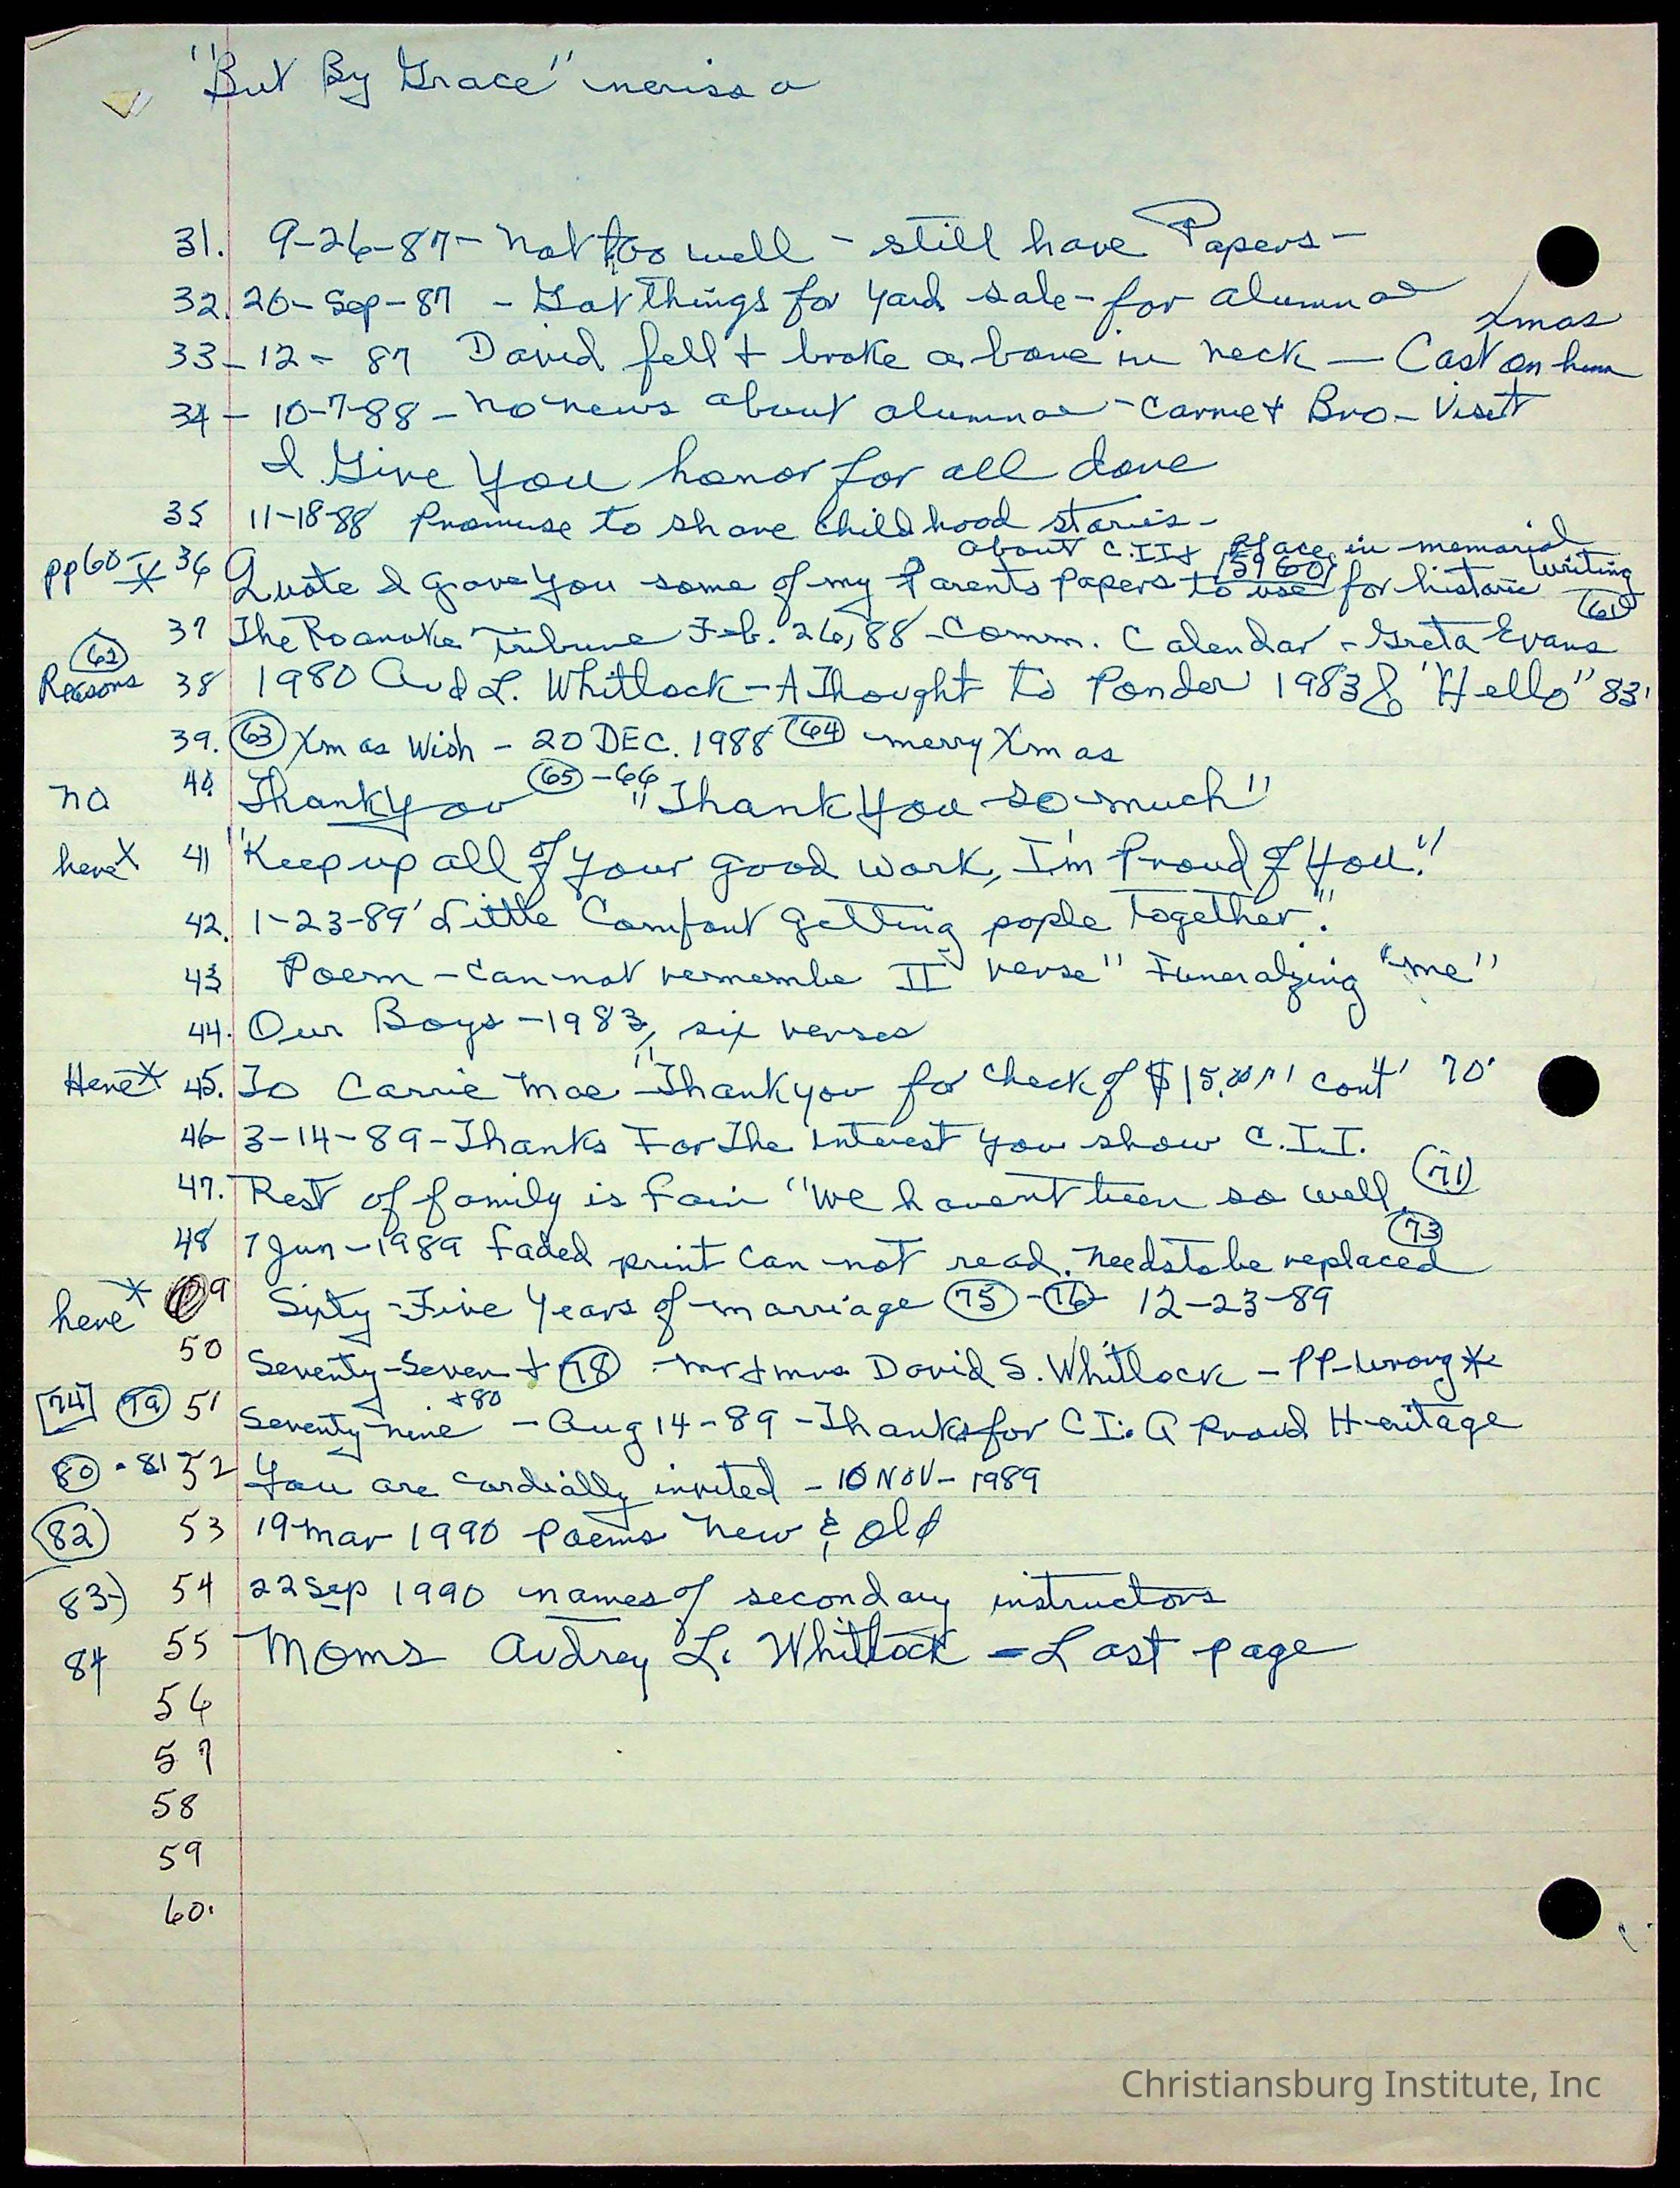 "But By Grace" nerissa
31. 9-26-87- Not too well - still have Papers-
32. 26- Sep- 87 - Got things for yard sale - for alumnae
Xmas
33- 12- 87 David fell + broke a bone in neck — Cast on him
34- 10-7-88- No news about alumnae - Carrie + Bro- Visit
I Give You honor for all done
35 11-18-88 Promise to share childhood stories-
about C.I I + place in memorial
pp60- * 36 Quote I gave you some of my Parents Papers to use 59 60 for historic writing
61
37 The Roanoke Tribune Feb. 26, 88 - Comm. Calendar - Greta Evans
62
Reasons 38 1980 Aud L. Whitlock - A Thought to Ponder 1983 & "Hello" 83'
39. 63 Xmas Wish - 20 DEC. 1988 64 merry Xmas
no 40 Thank you 65 - 66 "Thank You so much"
here X 41 "Keep up all of your good work, I'm Proud of You."
42. 1-23-89 "Little Comfort getting pople together."
43 Poem - can not remembe II verse" Funeralzing "me"
44. Our Boys - 1983, six verses
Here * 45. To Carrie Mae "Thank you for check of $15.00" cont' 70.
46 3-14-89 - Thanks For The interest you show C.I.I.
47. Rest of family is fair "We havent been so well. 71
73
48 7 Jun - 1989 faded print can not read. Needs to be replaced
here * 9 Sixty-Five Years of marriage 75 - 76 12-23-89
50 Seventy-Seven + 78 - Mr + Mrs David S. Whitlock - PP-wrong *
74 79 51 Seventy-nine +80 - Aug 14-89 - Thanks for CI: A Proud Heritage
80 . 81 52 You are cordially invited - 10 NOV - 1989
82 53 19 Mar 1990 Poems New & Old
83 54 22 Sep 1990 names of secondary instructors
84 55 Moms Audrey L. Whitlock - Last page
56
57
58
59
60.
Christiansburg Institute, Inc